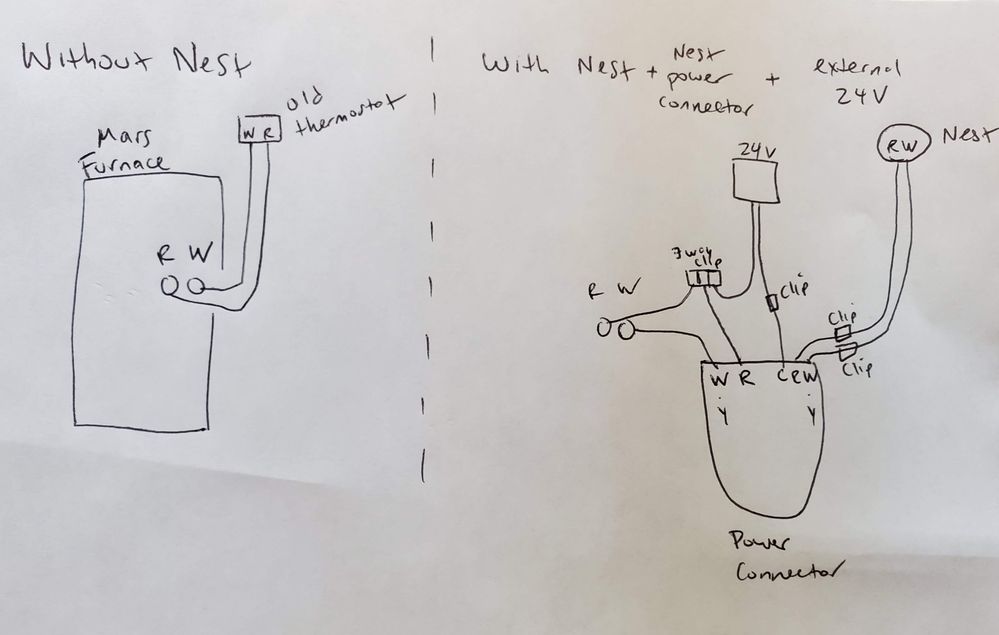 Without Nest
old
thermostat
W R
Mars
Furnace
R W
With Nest + Nest power connector + external 24V
24V
RW Nest
3 way
clip
R W
Clip
Clip
Clip
W R C R W
Y Y
Power
Connector